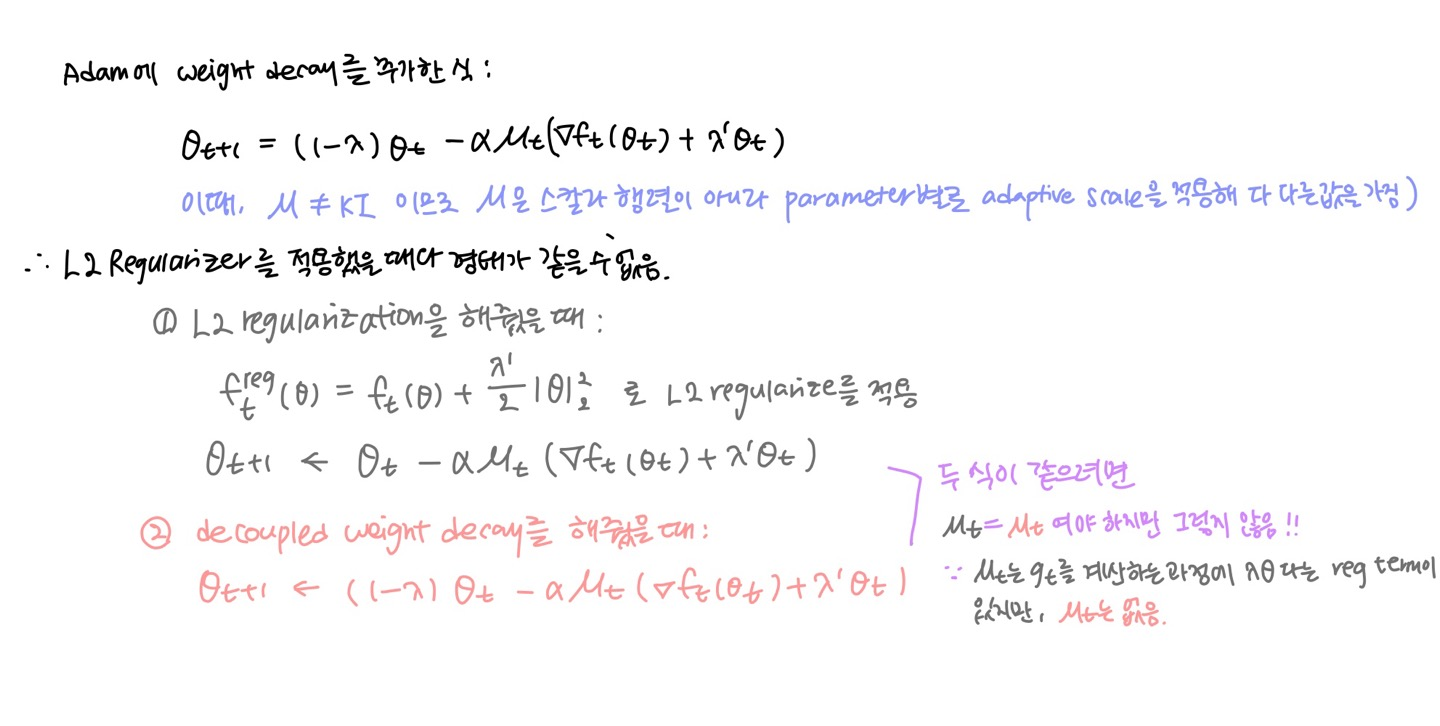 Adam에 weight decay를 추가한 식 :
θ_{t+1} = (1-λ) θ_t - α M_t (∇f_t(θ_t) + λ'θ_t)
이때, M ≠ kI 이므로 M은 스칼라 행렬이 아니라 parameter별로 adaptive scale을 적용해 다 다른값을 가짐)
∴ L2 Regularizer를 적용했을 때와 형태가 같을 수 없음.
① L2 regularization을 해줬을 때 :
f_t^{reg}(θ) = f_t(θ) + λ'/2 |θ|_2^2 로 L2 regularize를 적용
θ_{t+1} ← θ_t - α M_t (∇f_t(θ_t) + λ'θ_t)
② decoupled weight decay를 해줬을 때 :
θ_{t+1} ← (1-λ) θ_t - α M_t (∇f_t(θ_t) + λ'θ_t)
두 식이 같으려면
M_t = M_t 여야 하지만 그렇지 않음 !!
∵ M_t는 g_t를 계산하는 과정에 λθ 라는 reg term이
있지만, M_t는 없음.